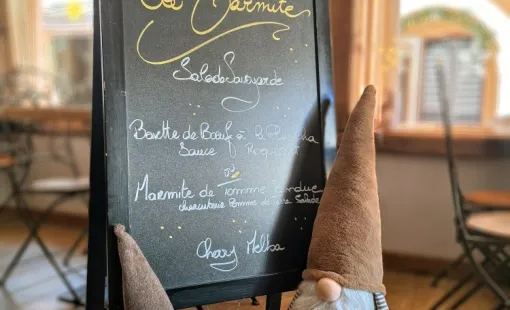 La Marmite
Salade Savoyarde
Bavette de Bœuf à la Plancha
Sauce Roquefort
ou
Marmite de Tomme Fondue
charcuterie Pommes de terre Salade
Cherry Melba